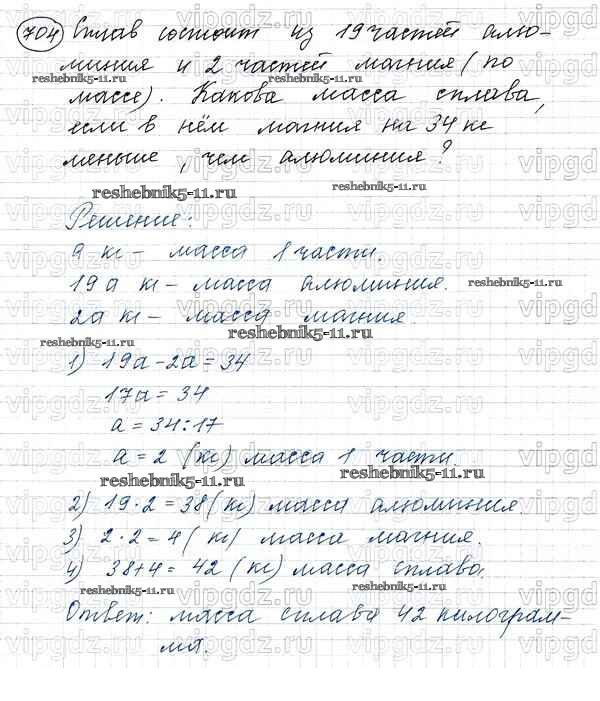 704 Сплав состоит из 19 частей алю-
миния и 2 частей магния (по
массе). Какова масса сплава,
если в нём магния на 34 кг
меньше, чем алюминия?
Решение:
а кг – масса 1 части.
19а кг – масса алюминия.
2а кг – масса магния.
1) 19а-2а=34
17а=34
а=34:17
а=2 (кг) масса 1 части.
2) 19·2=38(кг) масса алюминия
3) 2·2=4(кг) масса магния.
4) 38+4=42 (кг) масса сплава.
Ответ: масса сплава 42 килограм-
ма.
reshebnik5-11.ru
vipgdz.ru